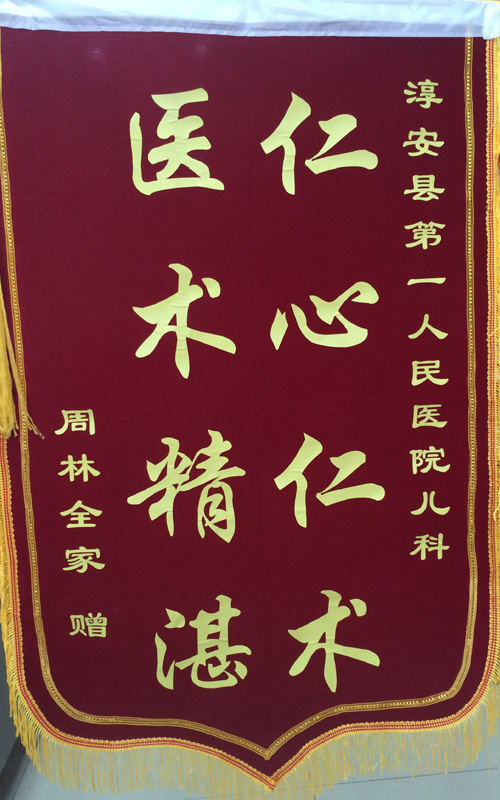 淳安县第一人民医院儿科
仁心仁术
医术精湛
周林全家 赠